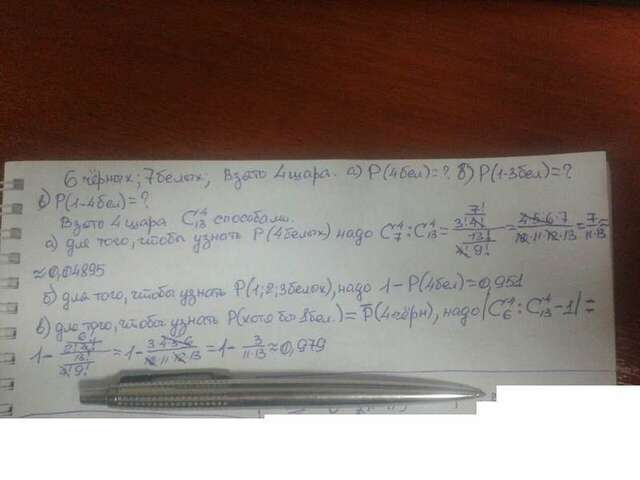 6 чёрных; 7 белых; Взято 4 шара. а) P(4бел)=? б) P(1-3бел)=?
в) P(1-4бел)=?
Взято 4 шара C₁₃⁴ способами.
а) для того, чтобы узнать P(4белых) надо C₇⁴ : C₁₃⁴ = (7!/(3!4!))/(13!/(4!9!)) = (4·5·6·7)/(10·11·12·13) = 7/(11·13) ≈
≈ 0,04895
б) для того, чтобы узнать P(1;2;3белох), надо 1-P(4бел)=0,951
в) для того, чтобы узнать P(хотя бы 1бел.) = P̅(4чёрн), надо |C₆⁴ : C₁₃⁴ - 1| =
1 - (6!/(2!4!))/(13!/(4!9!)) = 1 - (3·4·5·6)/(10·11·12·13) = 1 - 3/(11·13) ≈ 0,979